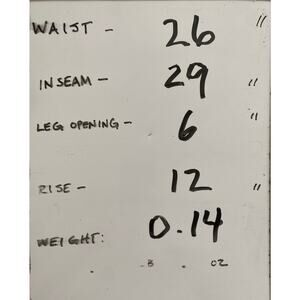 WAIST - 26 "
INSEAM - 29 "
LEG OPENING - 6 "
RISE - 12 "
WEIGHT: 0.14